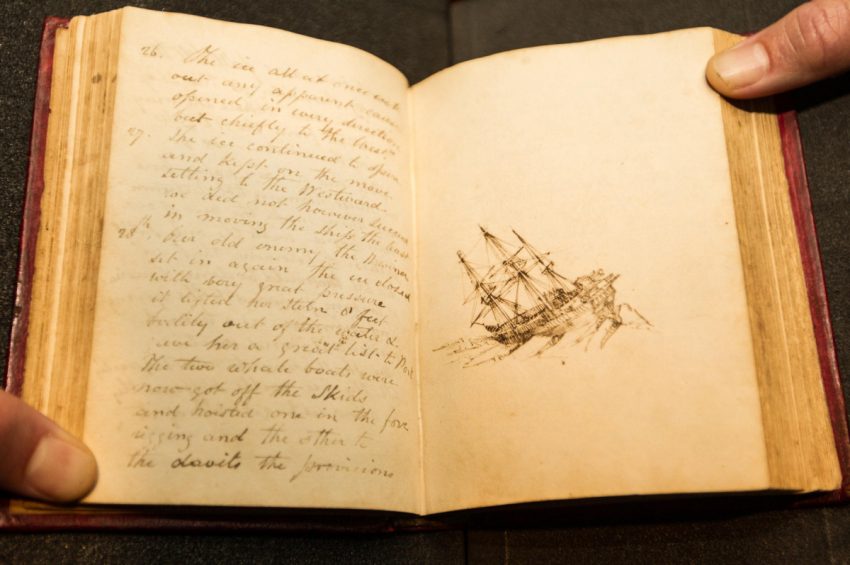 26. The ice all at once with
out any apparent cause
opened in every direction
but chiefly to the
27. The ice continued to open
and kept on the move
setting to the Westward
we did not however succeed
in moving the ship the least
28th. Our old enemy the
set in again the ice closed
with very great pressure
it lifted her stern 8 feet
out of the water &
her a great list to Port
The two whale boats were
now got off the Skids
and hoisted one in the fore
rigging and the other to
the davits the provisions